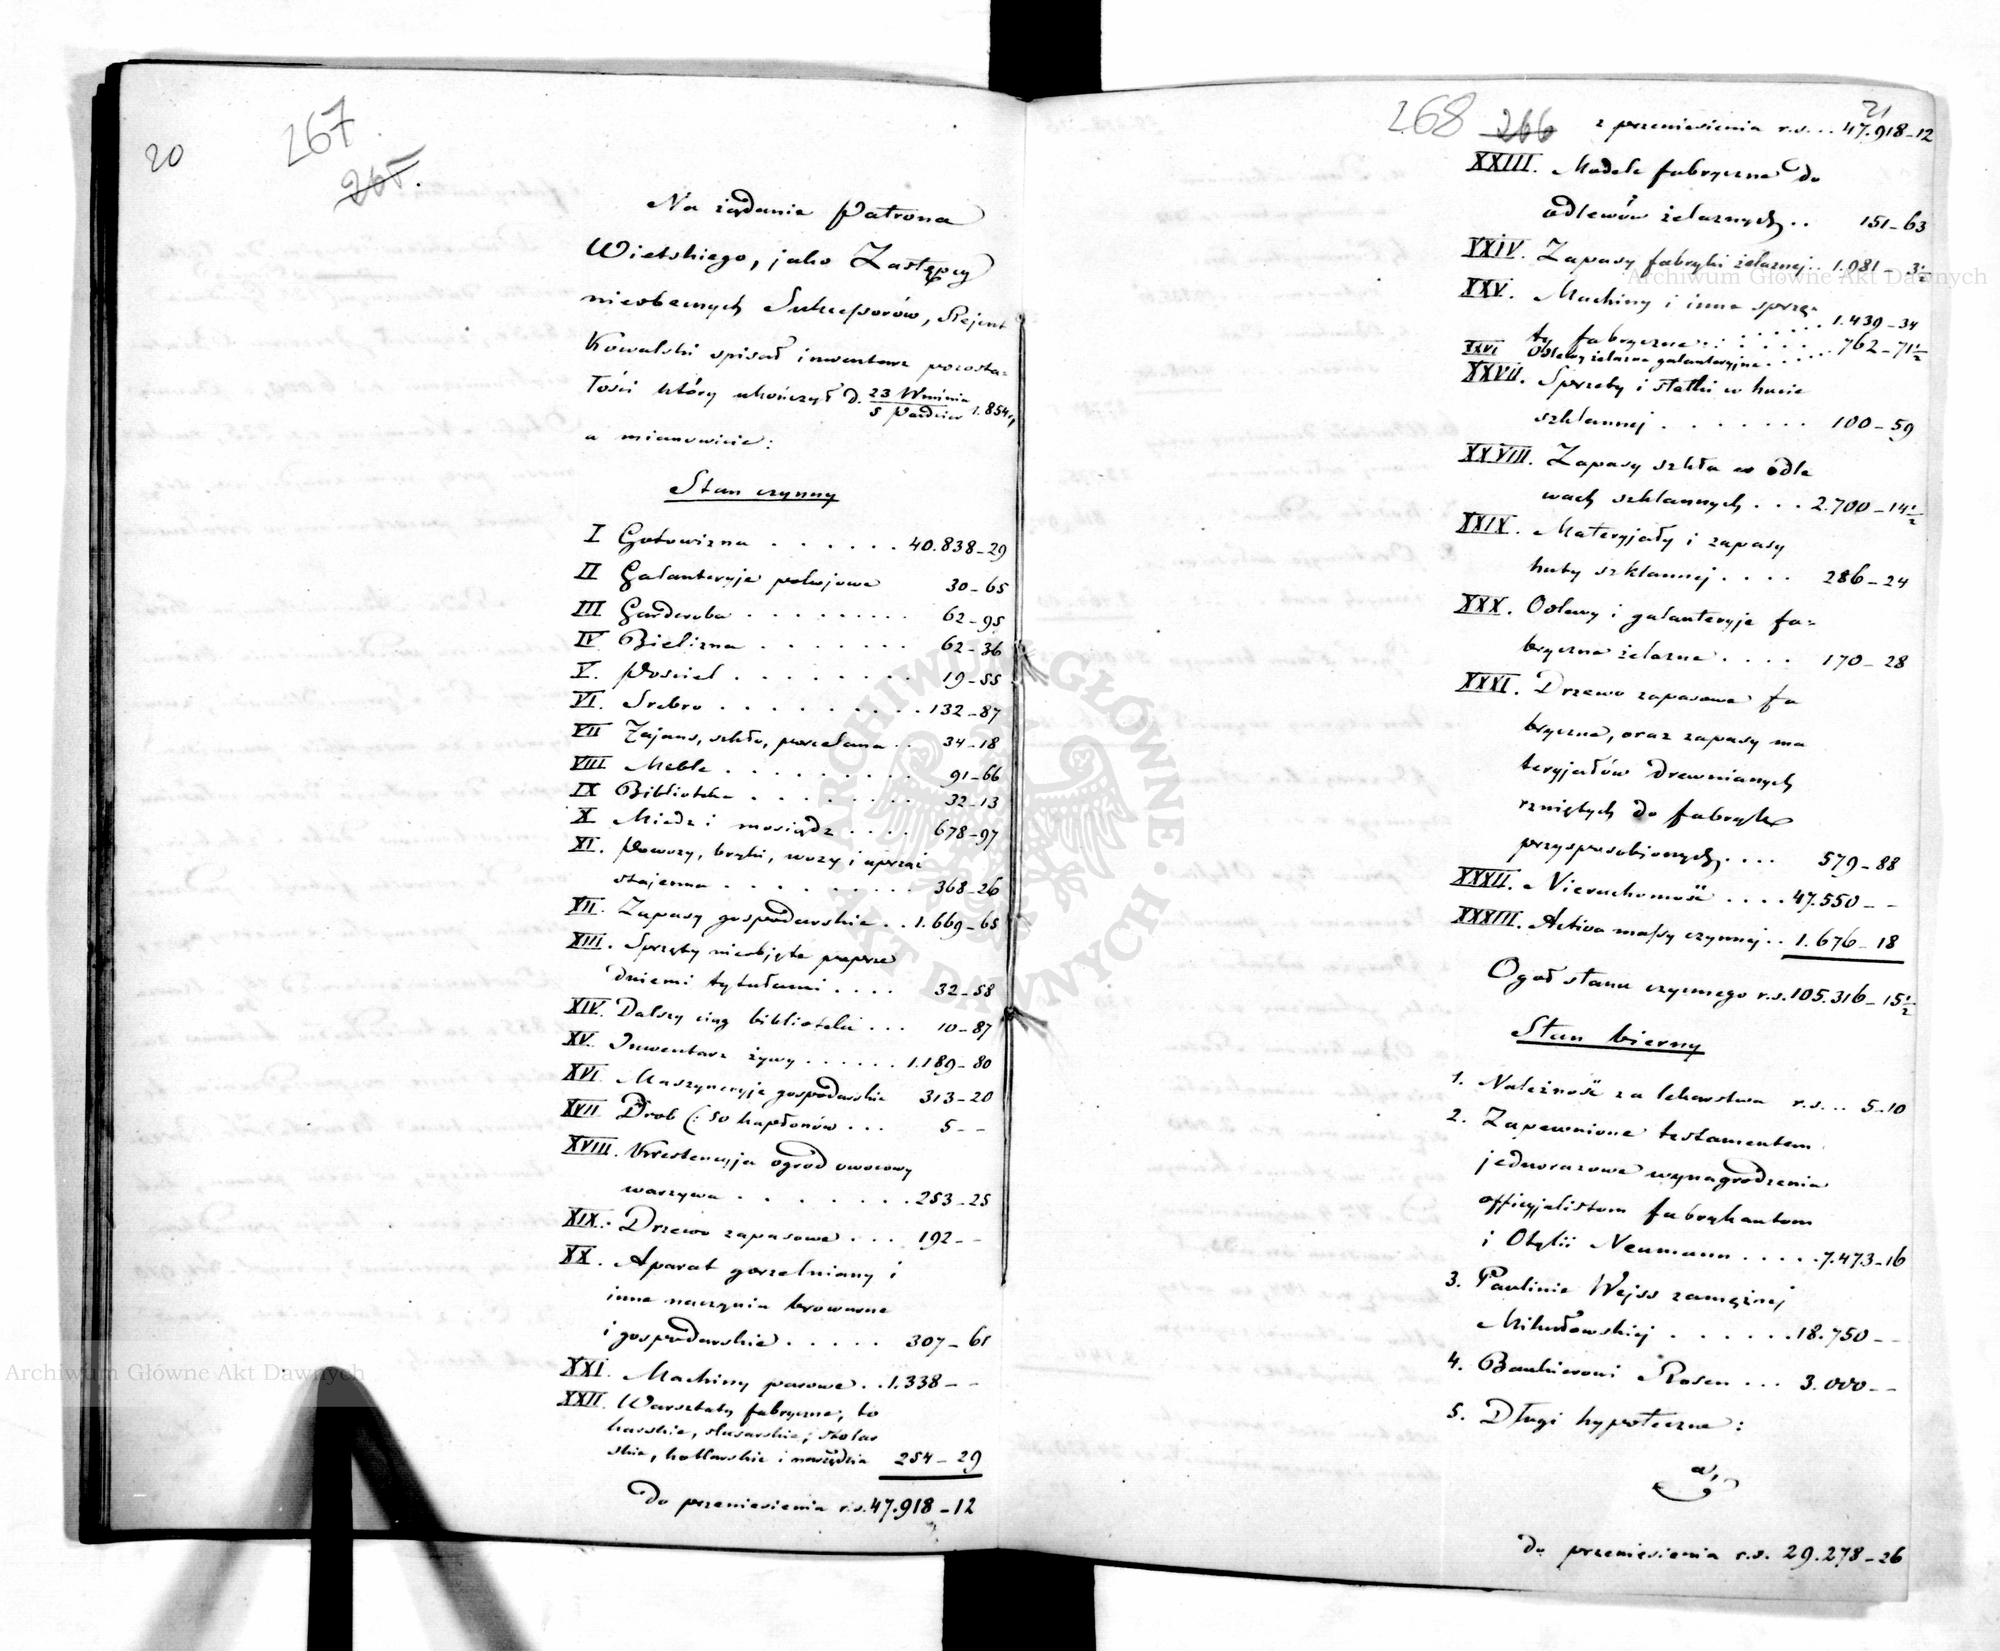 20
267
265.
Na żądanie Patrona
Wietskiego, jako Zastępcy
nieobecnych Sukcessorów, Rejent
Kowalski spisał inwentarz pozosta=
łości który ukończył d. 23 Września / 5 Paździer 1.854 r,
a mianowicie:
Stan czynny
I Gotowizna . . . . . . 40.838-29
II Galanteryje pokojowe 30-65
III Garderoba . . . . . . . . 62-95
IV Bielizna . . . . . . . 62-36
V. Pościel . . . . . . . . 19-55
VI. Srebro . . . . . . . . . 132-87
VII Fajans, szkło, porcelana . . 34-18
VIII Meble . . . . . . . . . 91-66
IX Biblioteka . . . . . . . . 32-13
X Miedź i mosiądz . . . . 678-97
XI. Powozy, bryki, wozy i uprząż
stajenna . . . . . . . . . 368-26
XII. Zapasy gospodarskie . . 1.669-65
XIII. Sprzęty nieobjęte poprze
dniemi tytułami . . . . 32-58
XIV. Dalszy ciąg biblioteki . . . 10-87
XV. Inwentarz żywy . . . . . . 1.189-80
XVI. Maszyneryje gospodarskie 313-20
XVII Drob (: 50 kapłonów . . . 5--
XVIII. Krestencyja ogrod owocowy
warzywa . . . . . . . . 253-25
XIX. Drzewo zapasowe . . . 192--
XX. Aparat gorzelniany i
inne naczynia browarne
i gospodarskie . . . . . 307-61
XXI. Machiny parowe . . 1.338--
XXII. Warsztaty fabryczne, to
karskie, slusarskie, stolar
skie, kotlarskie i narzędzia 254-29
Do przeniesienia r.s. 47.918-12
268 266
21
z przeniesienia r.s. . . 47.918-12
XXIII. Modele fabryczne do
odlewów żelaznych . . 151-63
XXIV. Zapasy fabryki żelaznej . . 1.081-3½
XXV. Machiny i inne sprzę-
ty fabryczne . . . . . . 1.439-34
XXVI Odlewy żelazne galanteryjne . . . . 762-71½
XXVII. Sprzęty i statki w hucie
szklannej . . . . . . . 100-59
XXVIII. Zapasy szkła w odle
wach szklannych . . . 2.700-14½
XXIX. Materyjały i zapasy
huty szklannej . . . . 286-24
XXX. Odlewy i galanteryje fa=
bryczne żelazne . . . . 170-28
XXXI. Drzewo zapasowe fa
bryczne, oraz zapasy ma
teryjałów drewnianych
rzniętych do fabryk
przysposobionych . . . . 579-88
XXXII. Nieruchomość . . . . 47.550--
XXXIII. Activa massy czynnej . . 1.676-18
Ogół stanu czynnego r.s. 105.316-15½
Stan bierny
1. Należność za lekarstwa r.s. . . 5-10
2. Zapewnione testamentem
jednorazowe wynagrodzenia
officyjalistom fabrykantom
i Otylii Neumann . . . . . 7.473-16
3. Paulinie Wejss zamężnej
Mikułowskiej . . . . . . 18.750--
4. Bankierowi Rosen . . . 3.000--
5. Długi hypoteczne:
a,
do przeniesienia r.s. 29.278-26
Archiwum Główne Akt Dawnych
Archiwum Główne Akt Dawnych
ARCHIWUM GŁÓWNE · AKT DAWNYCH ·